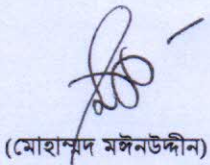 (মোহাম্মদ মঈনউদ্দীন)